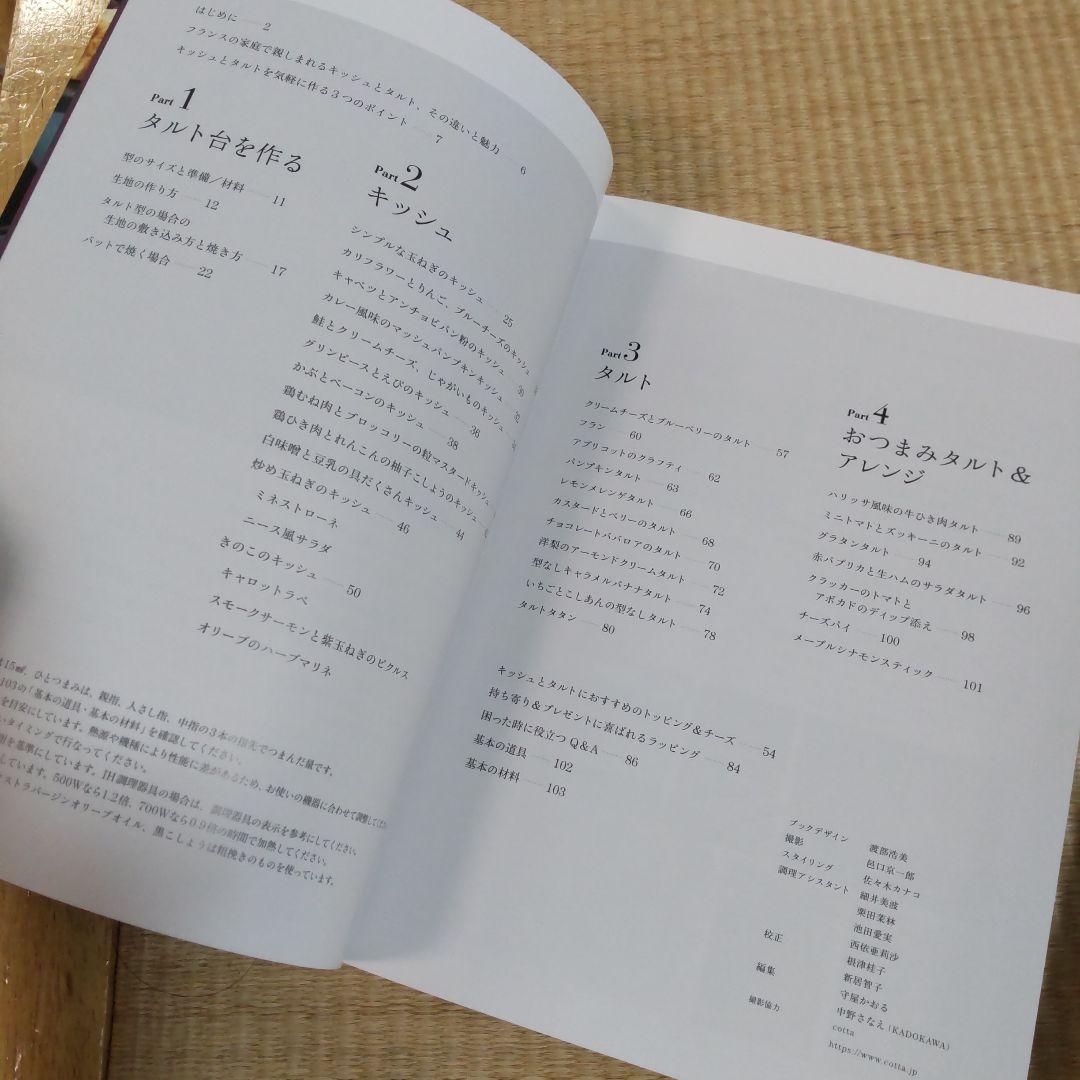 はじめに 2
フランスの家庭で親しまれるキッシュとタルト、その違いと魅力 6
キッシュとタルトを気軽に作る3つのポイント 7
Part 1
タルト台を作る
型のサイズと準備／材料 11
生地の作り方 12
タルト型の場合の
生地の敷き込み方と焼き方 17
バットで焼く場合 22
Part 2
キッシュ
シンプルな玉ねぎのキッシュ 25
カリフラワーとりんご、ブルーチーズのキッシュ
キャベツとアンチョビパン粉のキッシュ 30
カレー風味のマッシュパンプキンキッシュ 32
鮭とクリームチーズ、じゃがいものキッシュ
グリンピースとえびのキッシュ 36
かぶとベーコンのキッシュ 38
鶏むね肉とブロッコリーの粒マスタードキッシュ
鶏ひき肉とれんこんの柚子こしょうのキッシュ
白味噌と豆乳の具だくさんキッシュ 44
炒め玉ねぎのキッシュ 46
ミネストローネ
ニース風サラダ
きのこのキッシュ 50
キャロットラペ
スモークサーモンと紫玉ねぎのピクルス
オリーブのハーブマリネ
15㎖、ひとつまみは、親指、人さし指、中指の3本の指先でつまんだ量です。
103の「基本の道具・基本の材料」を確認してください。
を目安にしています。熱源や機種により性能に差があるため、お使いの機器に合わせて調整してくだ
いタイミングで行なってください。
を基準にしています。IH調理器具の場合は、調理器具の表示を参考にしてください。
しています。500Wなら1.2倍、700Wなら0.9倍の時間で加熱してください。
ストラバージンオリーブオイル、黒こしょうは粗挽きのものを使っています。
Part 3
タルト
クリームチーズとブルーベリーのタルト 57
フラン 60
アプリコットのクラフティ 62
パンプキンタルト 63
レモンメレンゲタルト 66
カスタードとベリーのタルト 68
チョコレートババロアのタルト 70
洋梨のアーモンドクリームタルト 72
型なしキャラメルバナナタルト 74
いちごとこしあんの型なしタルト 78
タルトタタン 80
キッシュとタルトにおすすめのトッピング&チーズ 54
持ち寄り&プレゼントに喜ばれるラッピング 84
困った時に役立つ Q&A 86
基本の道具 102
基本の材料 103
Part 4
おつまみタルト&
アレンジ
ハリッサ風味の牛ひき肉タルト 89
ミニトマトとズッキーニのタルト 92
グラタンタルト 94
赤パプリカと生ハムのサラダタルト 96
クラッカーのトマトと
アボカドのディップ添え 98
チーズパイ 100
メープルシナモンスティック 101
ブックデザイン 渡部浩美
撮影 邑口京一郎
スタイリング 佐々木カナコ
調理アシスタント 細井美波
栗田茉林
池田愛実
西依亜莉沙
校正 根津桂子
新居智子
編集 守屋かおる
中野さなえ（KADOKAWA）
撮影協力 cotta
https://www.cotta.jp